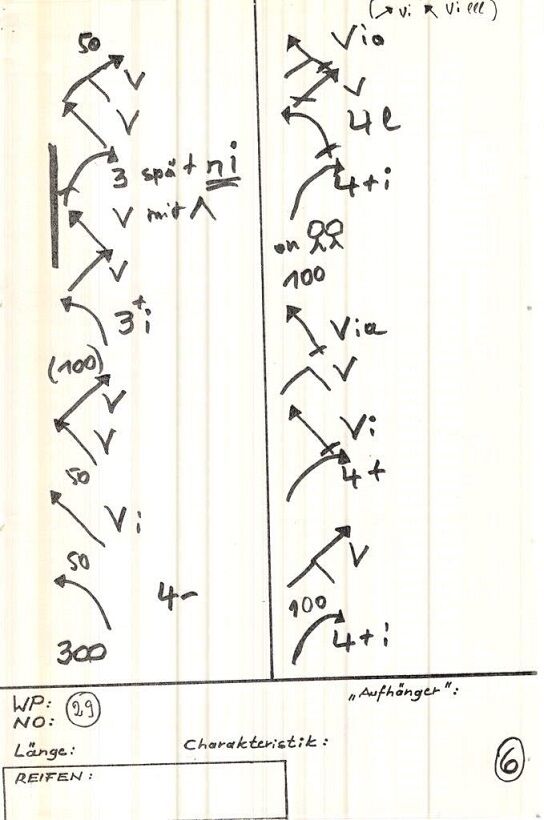 50
V
V
3 spät ni
V mit Λ
V
3+i
(100)
V
V
50
Vi
50
4-
300
(↗ Vi ↖ Vi lll)
Via
V
4 l
4+i
on
100
Via
V
Vi
4+
V
100
4+i
WP: 29
NO:
Länge:
Charakteristik:
REIFEN:
„Aufhänger":
6